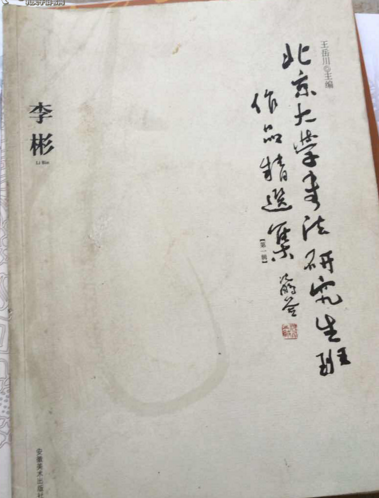 王岳川◎主编
北京大学书法研究生班
作品精选集
【第一辑】
李彬
Li Bin
安徽美术出版社